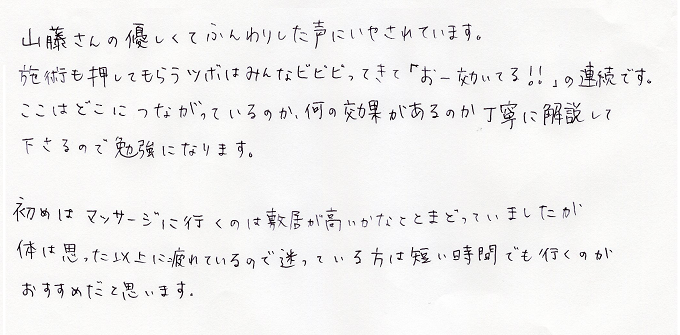 山藤さんの優しくてふんわりした声にいやされています。
施術も押してもらうツボはみんなビビビってきて「お一効いてる!!」の連続です。
ここはどこにつながっているのか、何の効果があるのか丁寧に解説して
下さるので勉強になります。
初めはマッサージに行くのは敷居が高いかなととまどっていましたが
体は思った以上に疲れているので迷っている方は短い時間でも行くのが
おすすめだと思います。